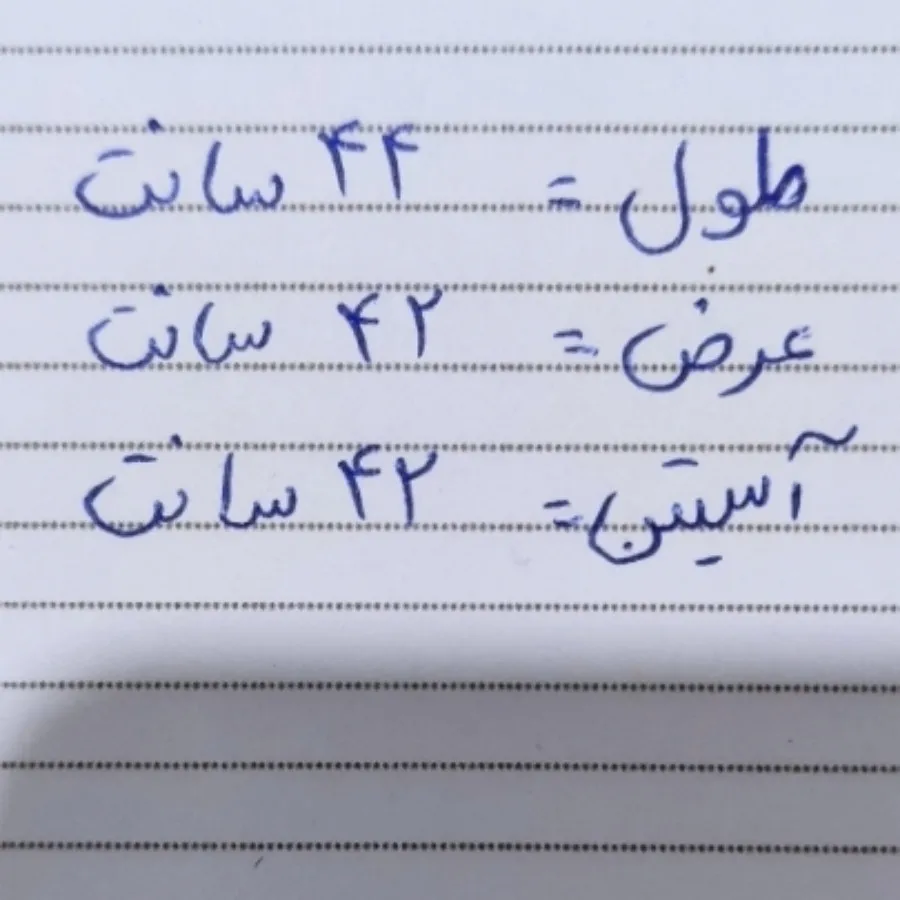 طول = ۴۴ سانت
عرض = ۴۲ سانت
آستین = ۴۲ سانت